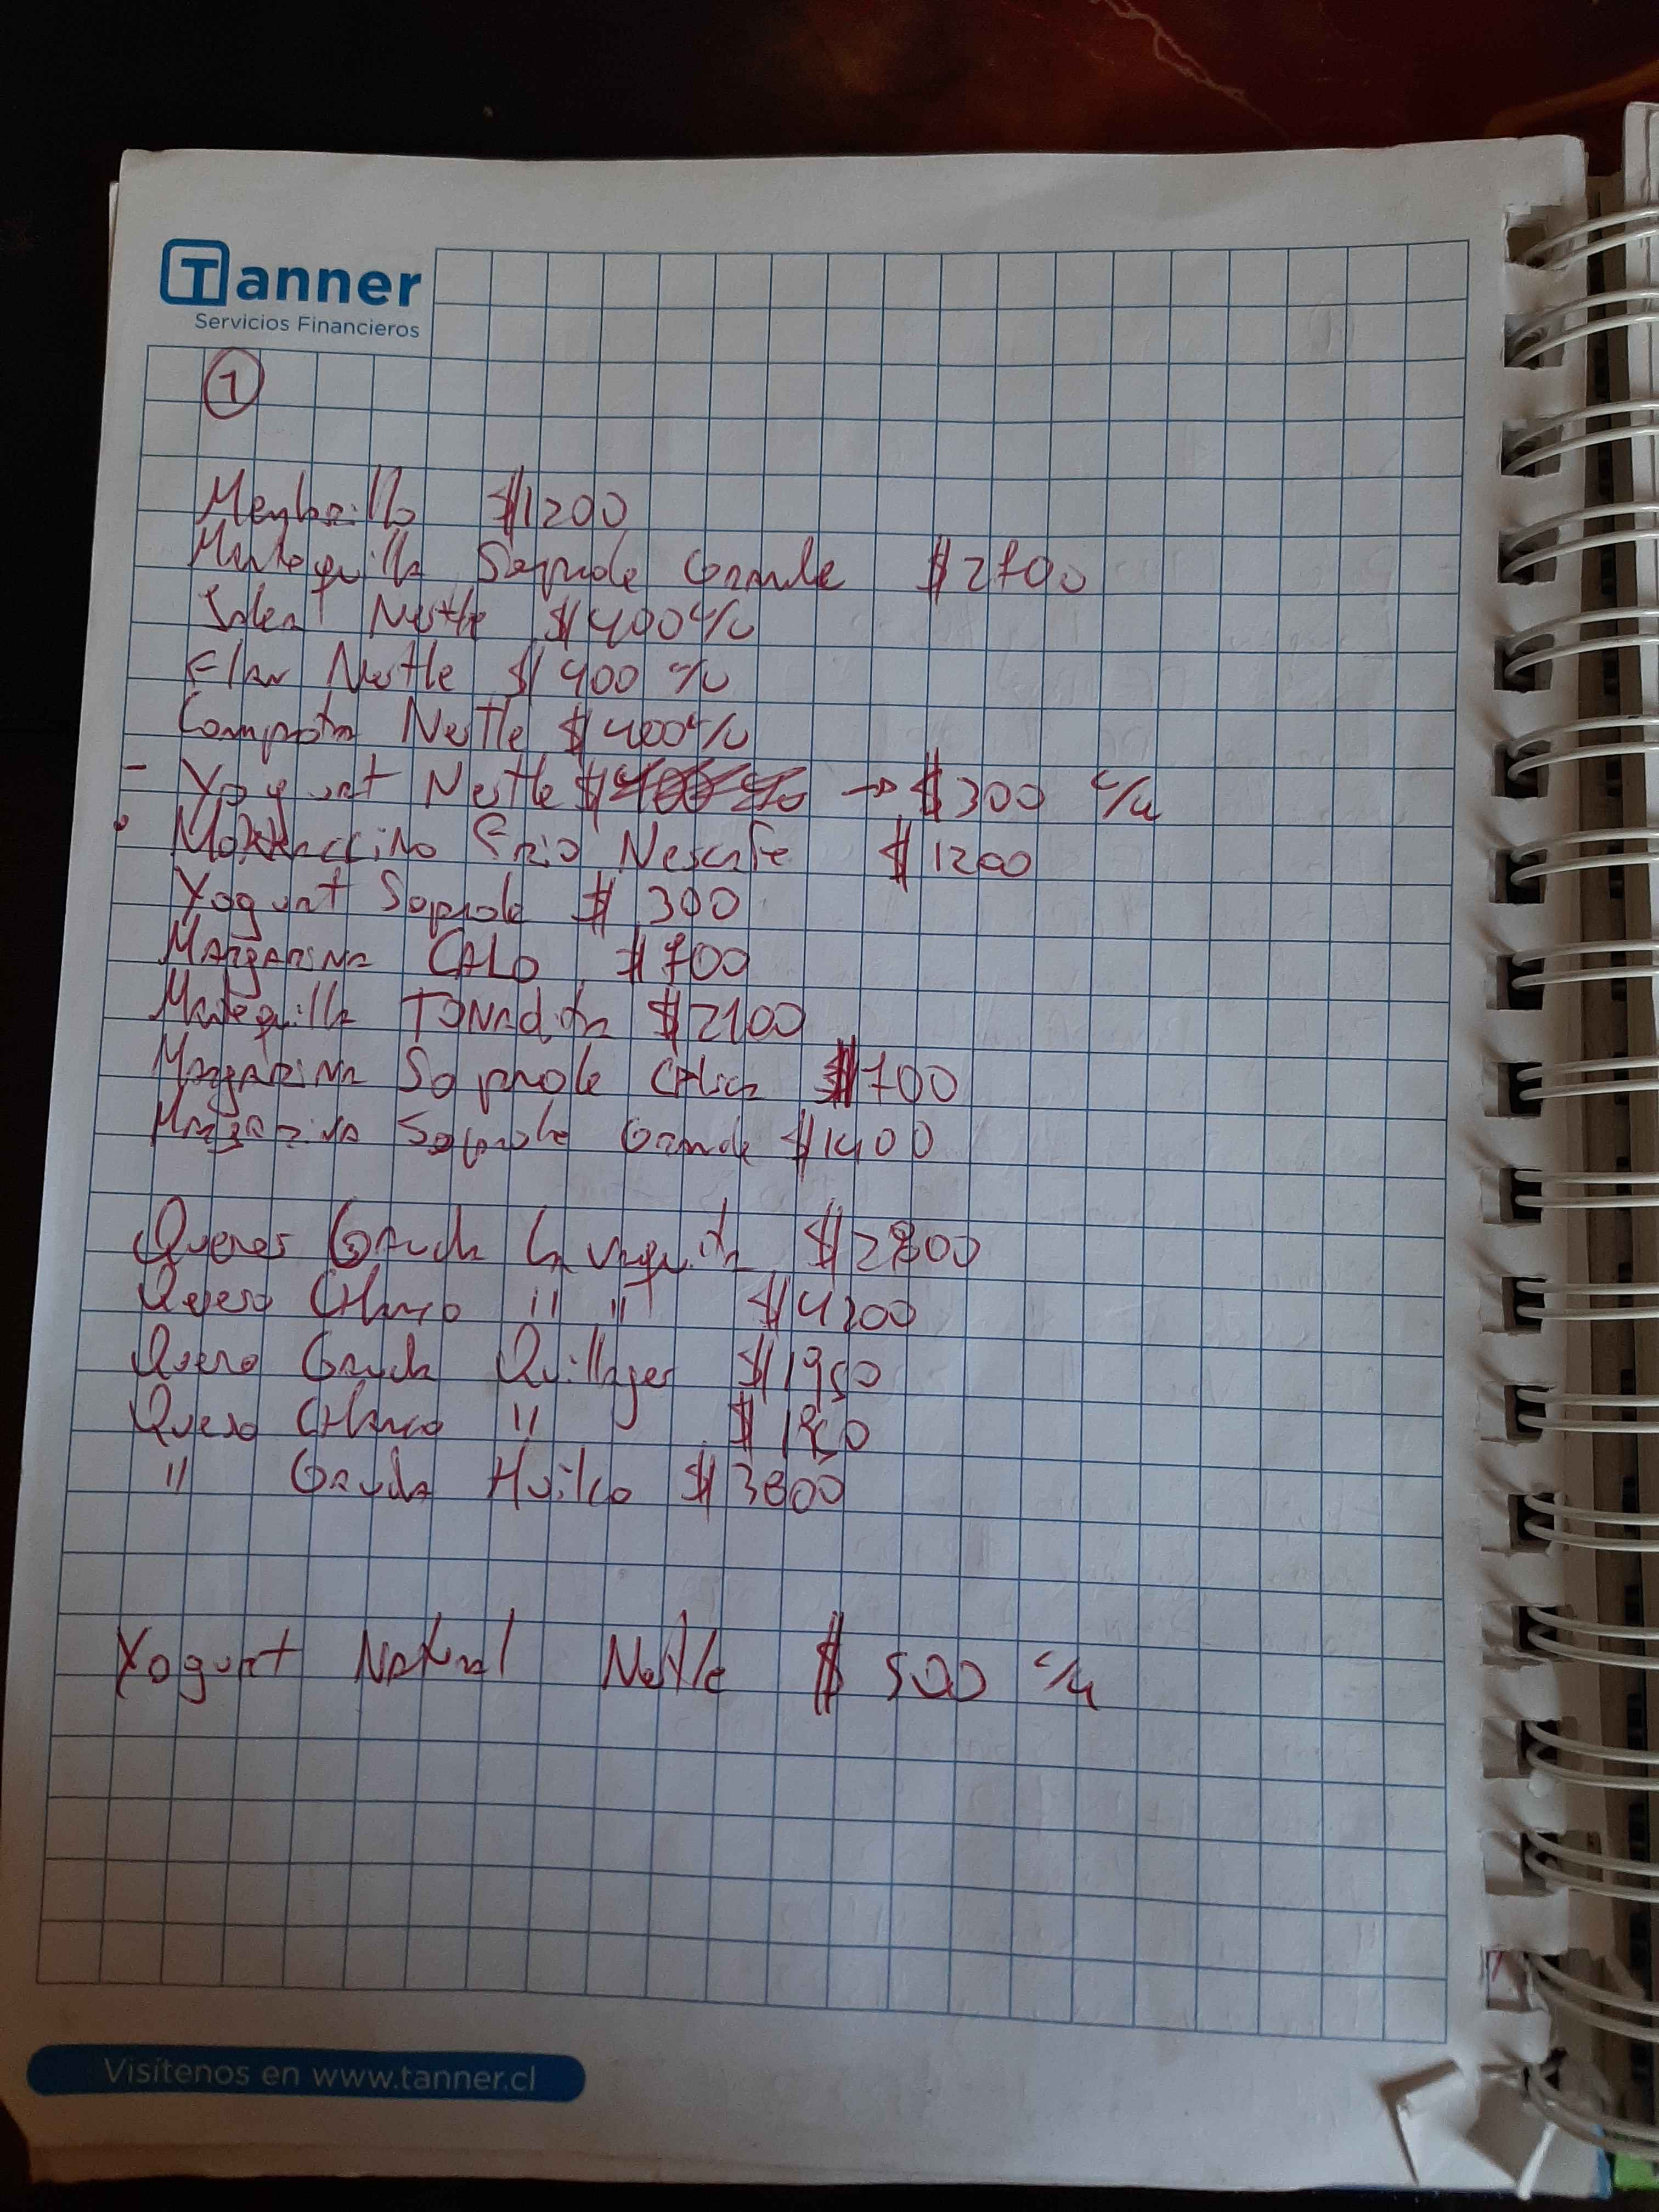 Tanner
Servicios Financieros
1
Membrillo $1200
Mantequilla Soprole Grande $2700
Ideal Nestle $400 c/u
Flan Nestle $400 c/u
Compota Nestle $400 c/u
- Yogurt Nestle → $300 c/u
• Mokaccino Frio Nescafe $1200
Yogurt Soprole $300
Margarina CALO $700
Mantequilla Tonadita $2100
Margarina Soprole CHica $700
Margarina Soprole Grande $1400
Quesos Gauda La Vaquita $2800
Queso CHanco " " $4200
Queso Gauda Quillayes $1950
Queso CHanco "
" Gauda Huilco $3800
Yogurt Natural Nestle $500 c/u
Visítenos en www.tanner.cl